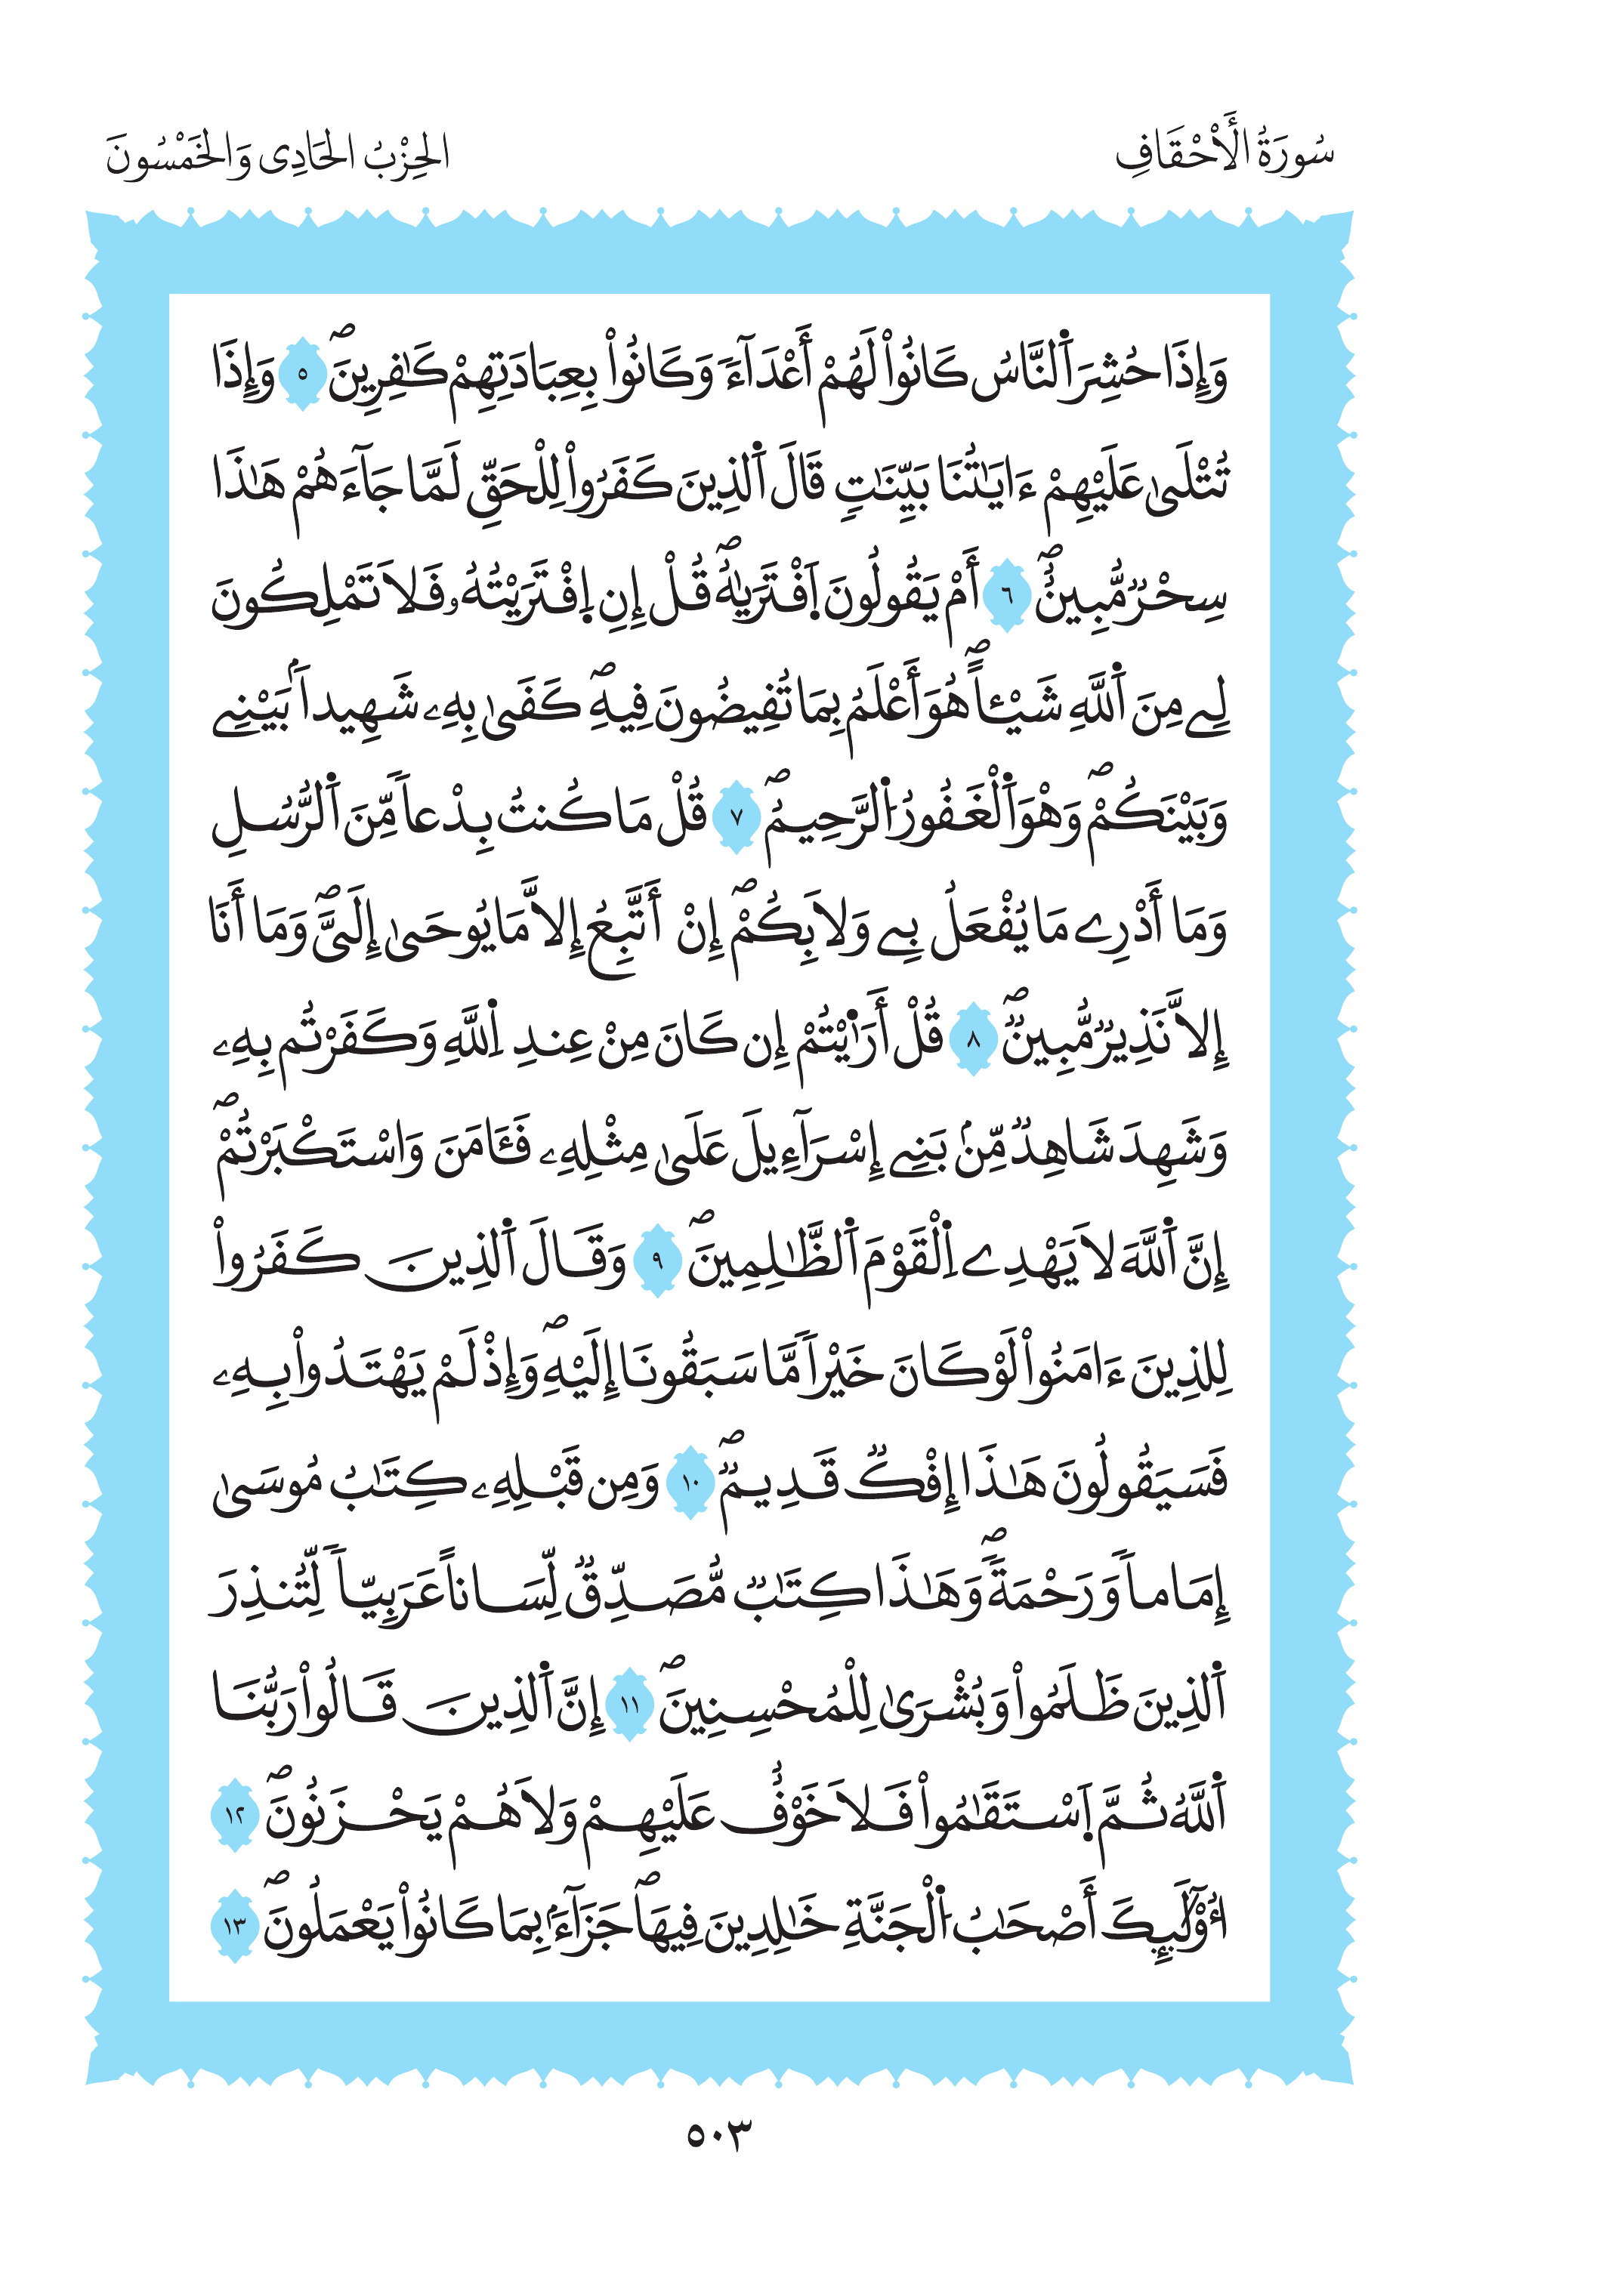 سُورَةُ الْأَحْقَافِ
الحِزْبُ الحَادِى وَالخَمْسُونَ
وَإِذَا حُشِرَ اَ۬لنَّاسُ كَانُواْ لَهُمْ أَعْدَآءٗ وَكَانُواْ بِعِبَادَتِهِمْ كَٰفِرِينَۖ ٥ وَإِذَا
تُتْلَىٰ عَلَيْهِمْ ءَايَٰتُنَا بَيِّنَٰتٖ قَالَ اَ۬لذِينَ كَفَرُواْ لِلْحَقِّ لَمَّا جَآءَهُمْ هَٰذَا
سِحْرٞ مُّبِينٌۖ ٦ أَمْ يَقُولُونَ اَ۪فْتَرَيٰهُۖ قُلْ إِنِ اِ۪فْتَرَيْتُهُۥ فَلَا تَمْلِكُونَ
لِے مِنَ اَ۬للَّهِ شَيْـٔاًۖ هُوَ أَعْلَمُ بِمَا تُفِيضُونَ فِيهِۖ كَفَىٰ بِهِۦ شَهِيداَۢ بَيْنِے
وَبَيْنَكُمْۖ وَهْوَ اَ۬لْغَفُورُ اُ۬لرَّحِيمُۖ ٧ قُلْ مَا كُنتُ بِدْعاٗ مِّنَ اَ۬لرُّسُلِ
وَمَا أَدْرِے مَا يُفْعَلُ بِے وَلَا بِكُمْۖ إِنْ أَتَّبِعُ إِلَّا مَا يُوحَىٰ إِلَىَّۖ وَمَا أَنَا
إِلَّا نَذِيرٞ مُّبِينٞۖ ٨ قُلْ أَرَٰٓيْتُمْ إِن كَانَ مِنْ عِندِ اِ۬للَّهِ وَكَفَرْتُم بِهِۦ
وَشَهِدَ شَاهِدٞ مِّنۢ بَنِے إِسْرَآءِيلَ عَلَىٰ مِثْلِهِۦ فَـَٔامَنَ وَاسْتَكْبَرْتُمْۖ
إِنَّ اَ۬للَّهَ لَا يَهْدِے اِ۬لْقَوْمَ اَ۬لظَّٰلِمِينَۖ ٩ وَقَالَ اَ۬لذِينَ كَفَرُواْ
لِلذِينَ ءَامَنُواْ لَوْ كَانَ خَيْراٗ مَّا سَبَقُونَا إِلَيْهِۖ وَإِذْ لَمْ يَهْتَدُواْ بِهِۦ
فَسَيَقُولُونَ هَٰذَا إِفْكٞ قَدِيمٞۖ ١٠ وَمِن قَبْلِهِۦ كِتَٰبُ مُوسَىٰ
إِمَاماٗ وَرَحْمَةٗۖ وَهَٰذَا كِتَٰبٞ مُّصَدِّقٞ لِّسَاناً عَرَبِيّاٗ لِّتُنذِرَ
اَ۬لذِينَ ظَلَمُواْ وَبُشْرَىٰ لِلْمُحْسِنِينَۖ ١١ إِنَّ اَ۬لذِينَ قَالُواْ رَبُّنَا
اَ۬للَّهُ ثُمَّ اَ۪سْتَقَٰمُواْ فَلَا خَوْفٌ عَلَيْهِمْ وَلَا هُمْ يَحْزَنُونَۖ ١٢
أُوْلَٰٓئِكَ أَصْحَٰبُ اُ۬لْجَنَّةِ خَٰلِدِينَ فِيهَاۖ جَزَآءَۢ بِمَا كَانُواْ يَعْمَلُونَۖ ١٣
٥٠٣